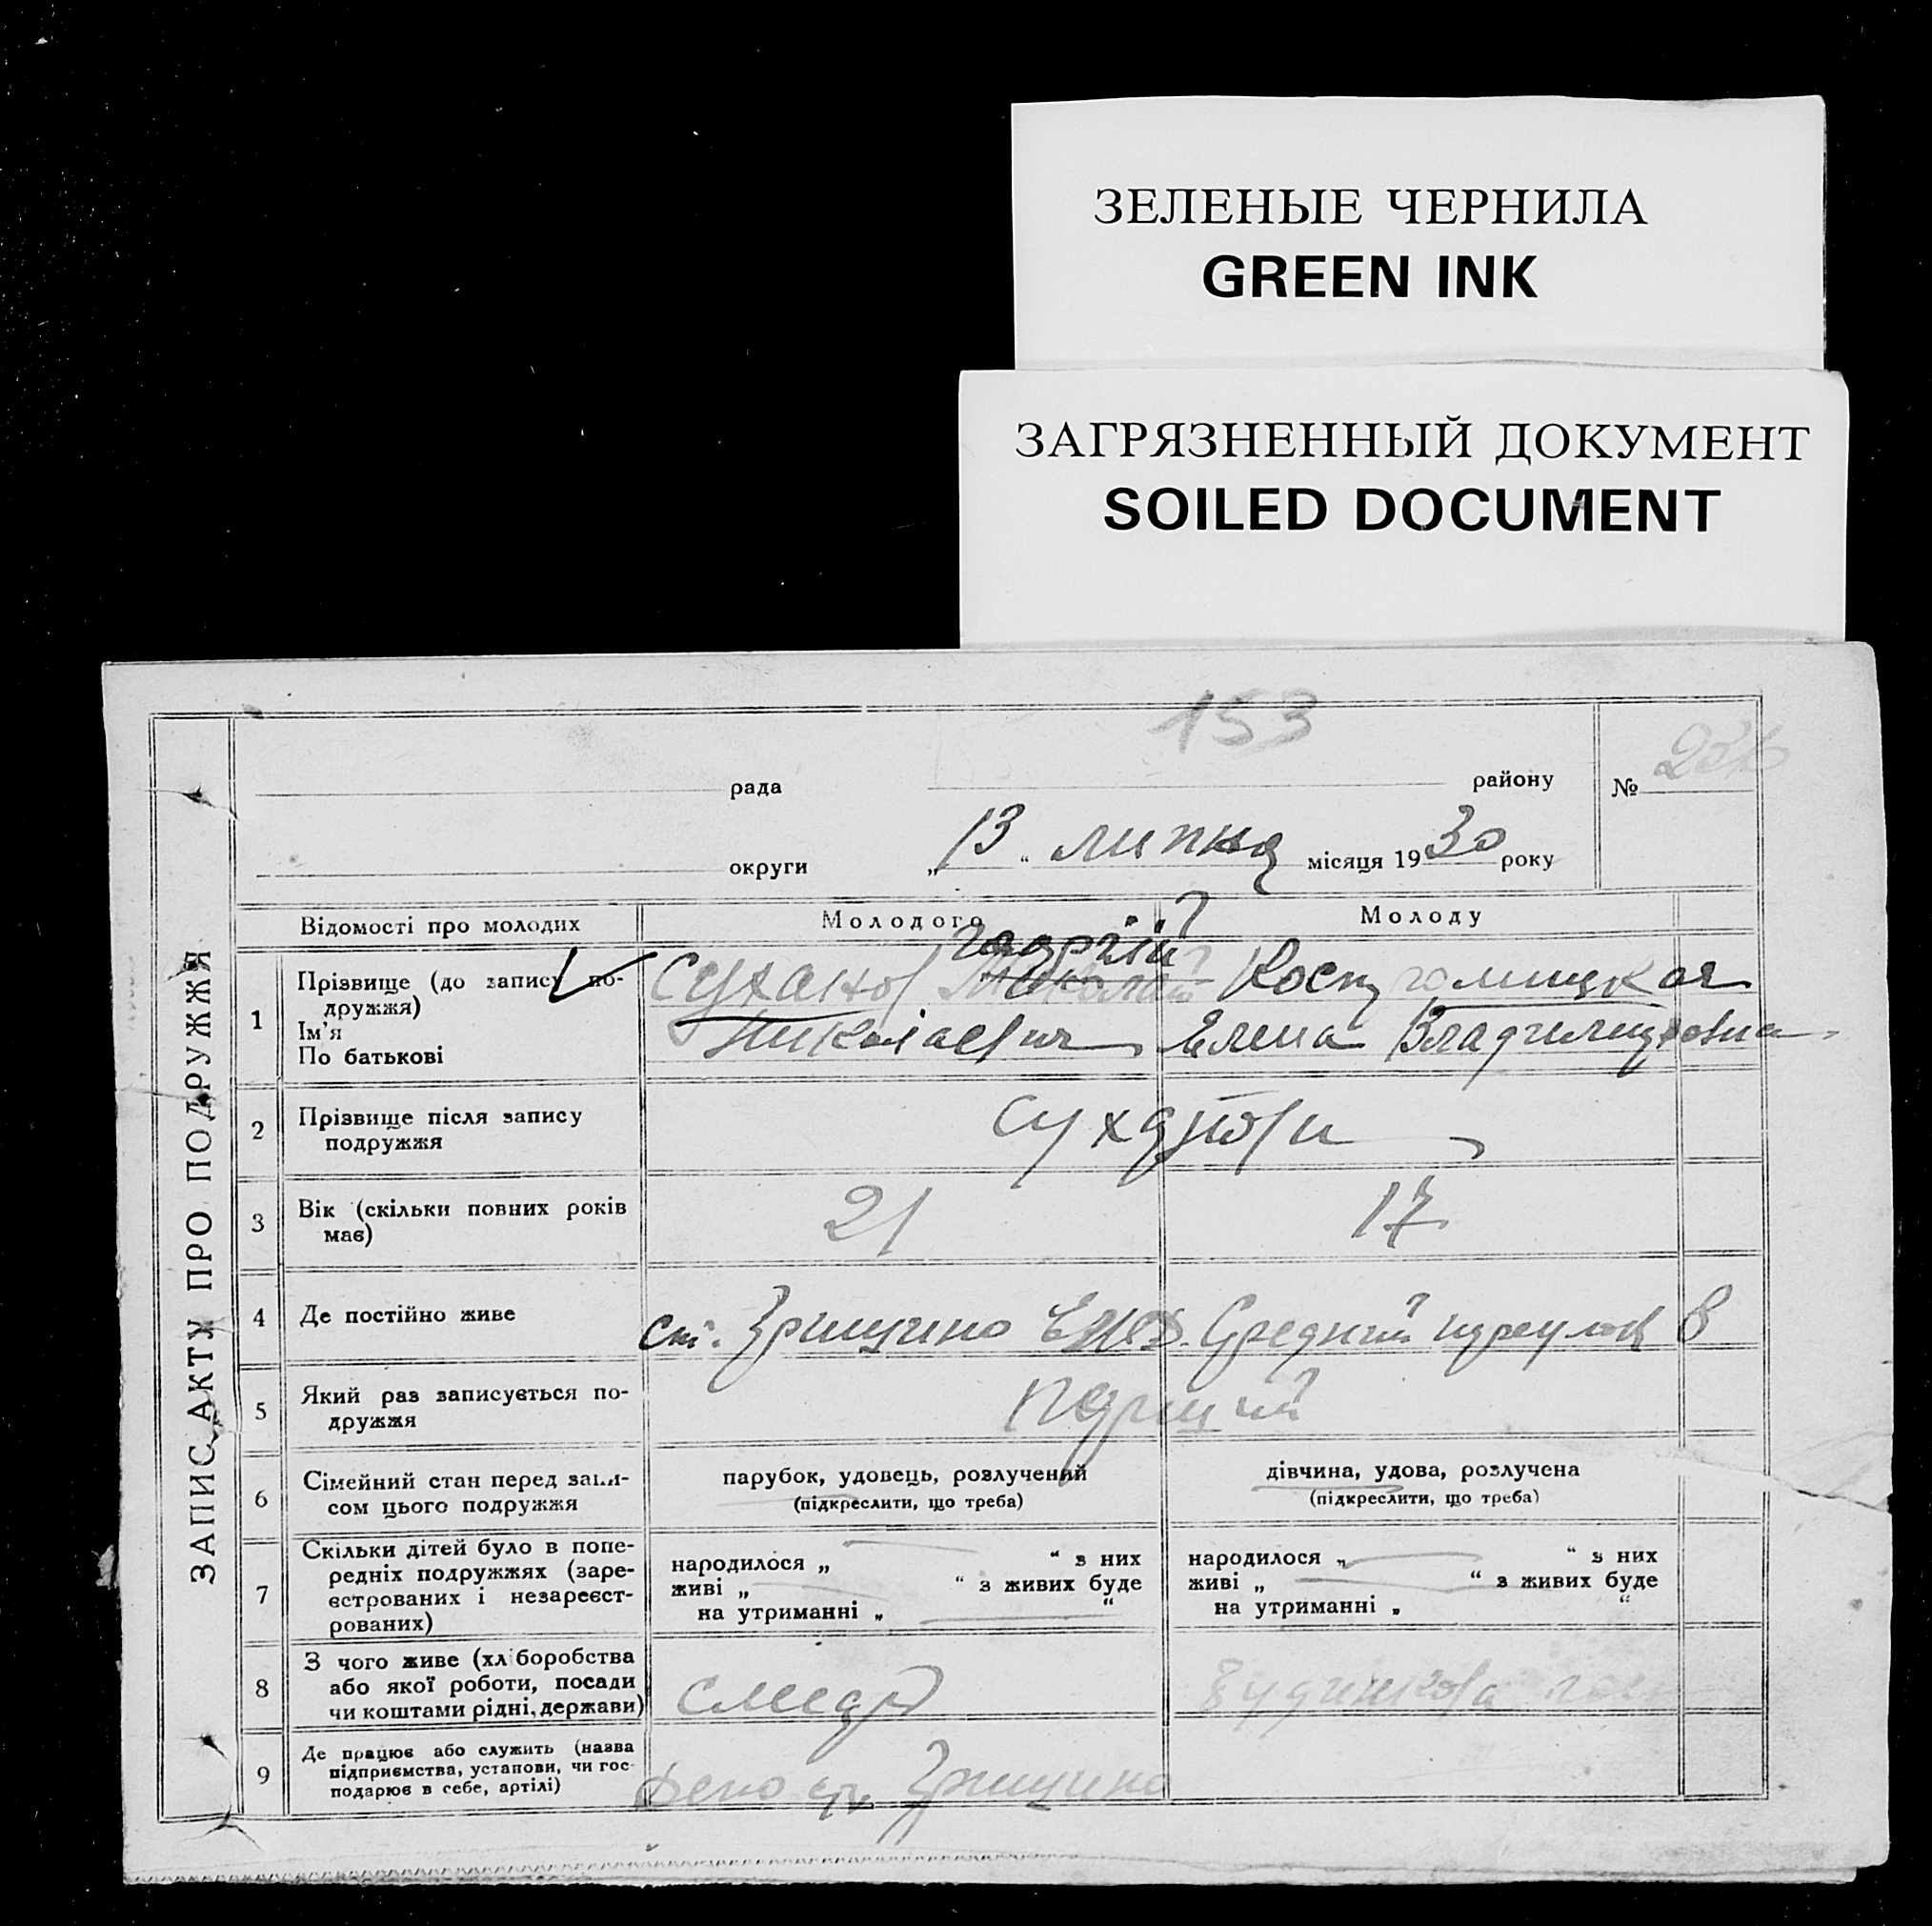 ЗЕЛЕНЫЕ ЧЕРНИЛА
GREEN INK
ЗАГРЯЗНЕННЫЙ ДОКУМЕНТ
SOILED DOCUMENT
153
рада району №
округи „13“ липня місяця 1930 року
ЗАПИС АКТУ ПРО ПОДРУЖЖЯ
Відомості про молодих Молодого Молоду
1 Прізвище (до запису по-
дружжя)
Ім'я
По батькові
Суханов Николаевич
Елена Владимировна
2 Прізвище після запису
подружжя
Суханови
3 Вік (скільки повних років
має)
21 17
4 Де постійно живе
ст. Гришино ЕЖД. Средний 8
5 Який раз записується по-
дружжя
перший
6 Сімейний стан перед запи-
сом цього подружжя
парубок, удовець, розлучений
(підкреслити, що треба)
дівчина, удова, розлучена
(підкреслити, що треба)
7 Скільки дітей було в попе-
редніх подружжях (заре-
єстрованих і незареєст-
рованих)
народилося „ “ з них
живі „ “ з живих буде
на утриманні „ “
народилося „ “ з них
живі „ “ з живих буде
на утриманні „ “
8 З чого живе (хліборобства
або якої роботи, посади
чи коштами рідні, держави)
9 Де працює або служить (назва
підприємства, установи, чи гос-
подарює в себе, артілі)
Депо ст. Гришино